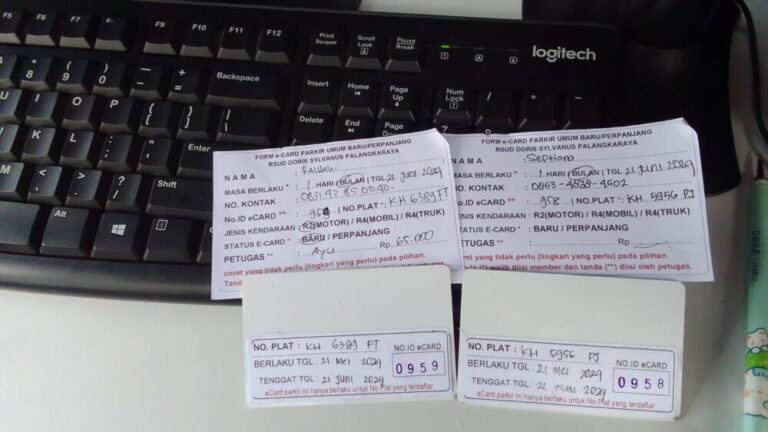 F5 F6 F7 F8 F9 F10 F11 F12 Print Screen Scroll Lock Pause Break
logitech
Backspace Insert Home Page Up Num Lock
Delete End Page Down
Enter
Shift
Alt Ctrl
FORM e-CARD PARKIR UMUM BARU/PERPANJANG
RSUD DORIS SYLVANUS PALANGKARAYA
NAMA :
MASA BERLAKU * : 1 HARI / BULAN | TGL 21 Juni 2024
NO. KONTAK :
No.ID eCARD ** : 959 | NO.PLAT : KH 6389 FT
JENIS KENDARAAN : R2(MOTOR) / R4(MOBIL) / R4(TRUK)
STATUS E-CARD * : BARU / PERPANJANG
PETUGAS ** : Ayu Rp 65.000
coret yang tidak perlu (lingkari yang perlu) pada pilihan.
FORM e-CARD PARKIR UMUM BARU/PERPANJANG
RSUD DORIS SYLVANUS PALANGKARAYA
NAMA : Septiana
MASA BERLAKU * : 1 HARI / BULAN | TGL 21 Juni 2024
NO. KONTAK : 0853-4838-4502
No.ID eCARD ** : 958 | NO.PLAT : KH 5956 PJ
JENIS KENDARAAN : R2(MOTOR) / R4(MOBIL) / R4(TRUK)
STATUS E-CARD * : BARU / PERPANJANG
PETUGAS ** : Rp.
coret yang tidak perlu (lingkari yang perlu) pada pilihan.
wajib diisi member dan tanda (**) diisi oleh petugas.
NO. PLAT : KH 6389 FT
BERLAKU TGL : 21 Mei 2024
TENGGAT TGL : 21 Juni 2024
NO.ID eCARD
0959
eCard parkir ini hanya berlaku untuk No.Plat yang terdaftar
NO. PLAT : KH 5956 PJ
BERLAKU TGL : 21 Mei 2024
TENGGAT TGL : 21 Juni 2024
NO.ID eCARD
0958
eCard parkir ini hanya berlaku untuk No.Plat yang terdaftar